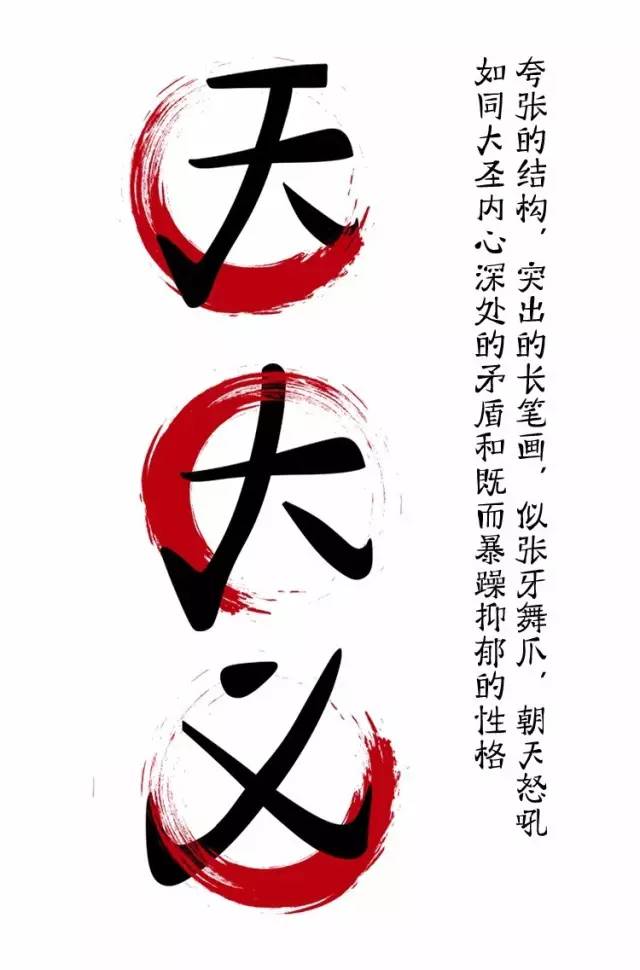 天
大
义
夸张的结构，突出的长笔画，似张牙舞爪，朝天怒吼
如同大圣内心深处的矛盾和既而暴躁抑郁的性格